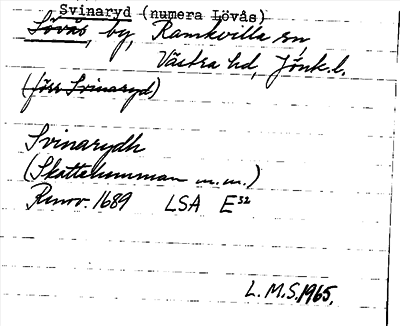 Svinaryd (numera Lövås)
Lövås, by, Ramkvilla sn,
Västra hd, Jönk.l.
(förr Svinaryd)
Svinarydh
(Skattehemman m.m.)
Renov. 1689 LSA E³²
L.M.S. 1965.